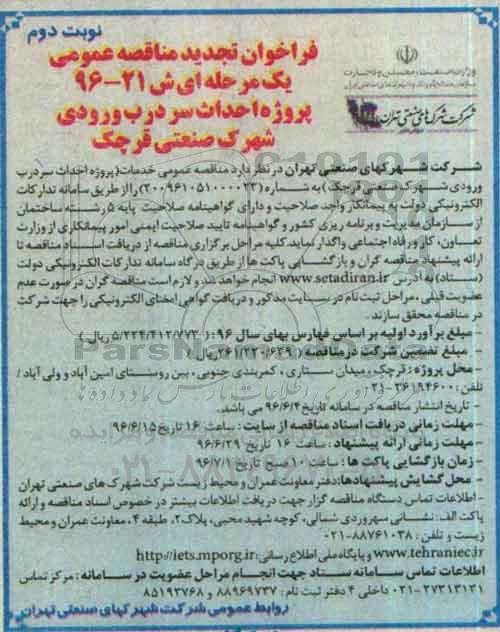 نوبت دوم
فراخوان تجدید مناقصه عمومی
یک مرحله ای ش ۲۱-۹۶
پروژه احداث سر درب ورودی
شهرک صنعتی قرچک
وزارت صنعت، معدن و تجارت
شرکت شهرکهای صنعتی تهران
شرکت شهرکهای صنعتی تهران در نظر دارد مناقصه عمومی خدمات (پروژه احداث سردرب
ورودی شهرک صنعتی قرچک) به شماره (۲۰۰۹۶۱۰۵۱۰۰۰۰۲۳) را از طریق سامانه تدارکات
الکترونیکی دولت به پیمانکار واجد صلاحیت و دارای گواهینامه صلاحیت پایه ۵ رشته ساختمان
از سازمان مدیریت و برنامه ریزی کشور و گواهینامه تایید صلاحیت ایمنی امور پیمانکاری از وزارت
تعاون، کار و رفاه اجتماعی واگذار نماید. کلیه مراحل برگزاری مناقصه از دریافت اسناد مناقصه تا
ارائه پیشنهاد مناقصه گران و بازگشایی پاکت ها از طریق درگاه سامانه تدارکات الکترونیکی دولت
(ستاد) به آدرس www.setadiran.ir انجام خواهد شد و لازم است مناقصه گران در صورت عدم
عضویت قبلی، مراحل ثبت نام در سایت مذکور و دریافت گواهی امضای الکترونیکی را جهت شرکت
در مناقصه محقق سازند.
- مبلغ برآورد اولیه بر اساس فهارس بهای سال ۹۶: ( ۵/۲۲۴/۴۱۲/۷۷۳ ریال )
- مبلغ تضمین شرکت در مناقصه: ( ۲۶۱/۲۲۰/۶۳۹ ریال )
- محل پروژه: قرچک، میدان ستاری، کمربندی جنوبی، بین روستای امین آباد و ولی آباد /
تلفن: ۳۶۱۹۴۶۰۰-۰۲۱
- تاریخ انتشار مناقصه در سامانه تاریخ ۹۶/۶/۴ می باشد.
- مهلت زمانی دریافت اسناد مناقصه از سایت: ساعت ۱۶ تاریخ ۹۶/۶/۱۵
- مهلت زمانی ارائه پیشنهاد: ساعت ۱۶ تاریخ ۹۶/۶/۲۹
- زمان بازگشایی پاکت ها: ساعت ۱۰ صبح تاریخ ۹۶/۷/۱
- محل گشایش پیشنهادها: دفتر معاونت عمران و محیط زیست شرکت شهرک های صنعتی تهران
- اطلاعات تماس دستگاه مناقصه گزار جهت دریافت اطلاعات بیشتر در خصوص اسناد مناقصه و ارائه
پاکت الف: نشانی سهروردی شمالی، کوچه شهید محبی، پلاک ۲، طبقه ۴، معاونت عمران و محیط
زیست و تلفن: ۸۸۷۶۱۰۳۸-۰۲۱
www.tehraniec.ir و پایگاه ملی اطلاع رسانی: http://iets.mporg.ir
اطلاعات تماس سامانه ستاد جهت انجام مراحل عضویت در سامانه: مرکز تماس
۲۷۳۱۳۱۳۱-۰۲۱ داخلی ۴ دفتر ثبت نام: ۸۸۹۶۹۷۳۷ و ۸۵۱۹۳۷۶۸
روابط عمومی شرکت شهرکهای صنعتی تهران